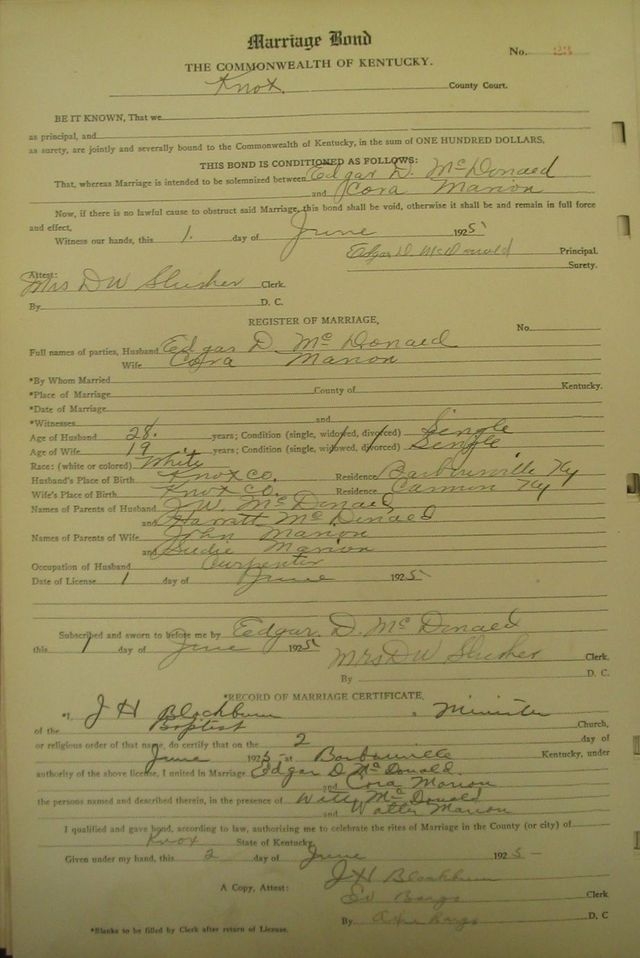 Marriage Bond
No. 23
THE COMMONWEALTH OF KENTUCKY.
Knox. County Court.
BE IT KNOWN, That we
as principal, and
as surety, are jointly and severally bound to the Commonwealth of Kentucky, in the sum of ONE HUNDRED DOLLARS.
THIS BOND IS CONDITIONED AS FOLLOWS:
That, whereas Marriage is intended to be solemnized between Edgar D. McDonald
and Cora Marion
Now, if there is no lawful cause to obstruct said Marriage, this bond shall be void, otherwise it shall be and remain in full force
and effect.
Witness our hands, this 1. day of June 1925
Edgar D. McDonald Principal.
Surety.
Attest:
Mrs DW Slusher Clerk.
By D. C.
REGISTER OF MARRIAGE,
No.
Full names of parties, Husband Edgar D. McDonald
Wife Cora Marion
*By Whom Married
*Place of Marriage County of Kentucky.
*Date of Marriage
*Witnesses and
Age of Husband 28. years; Condition (single, widowed, divorced) Single
Age of Wife 19 years; Condition (single, widowed, divorced) Single
Race: (white or colored) White
Husband's Place of Birth Knox Co. Residence Barbourville Ky
Wife's Place of Birth Knox Co. Residence Cannon Ky
Names of Parents of Husband J.W. McDonald
and Harritt McDonald
Names of Parents of Wife John Marion
and Sudie Marion
Occupation of Husband Carpenter
Date of License 1 day of June 1925
Subscribed and sworn to before me by Edgar. D. McDonald
this 1 day of June 1925
Mrs DW Slusher Clerk.
By D. C.
*RECORD OF MARRIAGE CERTIFICATE.
*I, J H Blackburn a Minister
of the Baptist Church,
or religious order of that name, do certify that on the 2 day of
June 1925 at Barbourville Kentucky, under
authority of the above license, I united in Marriage Edgar D McDonald.
and Cora Marion
the persons named and described therein, in the presence of Will McDonald
and Walter Marion
I qualified and gave bond, according to law, authorizing me to celebrate the rites of Marriage in the County (or city) of
Knox State of Kentucky
Given under my hand, this 2 day of June 1925-
J H Blackburn
A Copy, Attest: Ed Bargo Clerk
By Bargo D. C
*Blanks to be filled by Clerk after return of License.